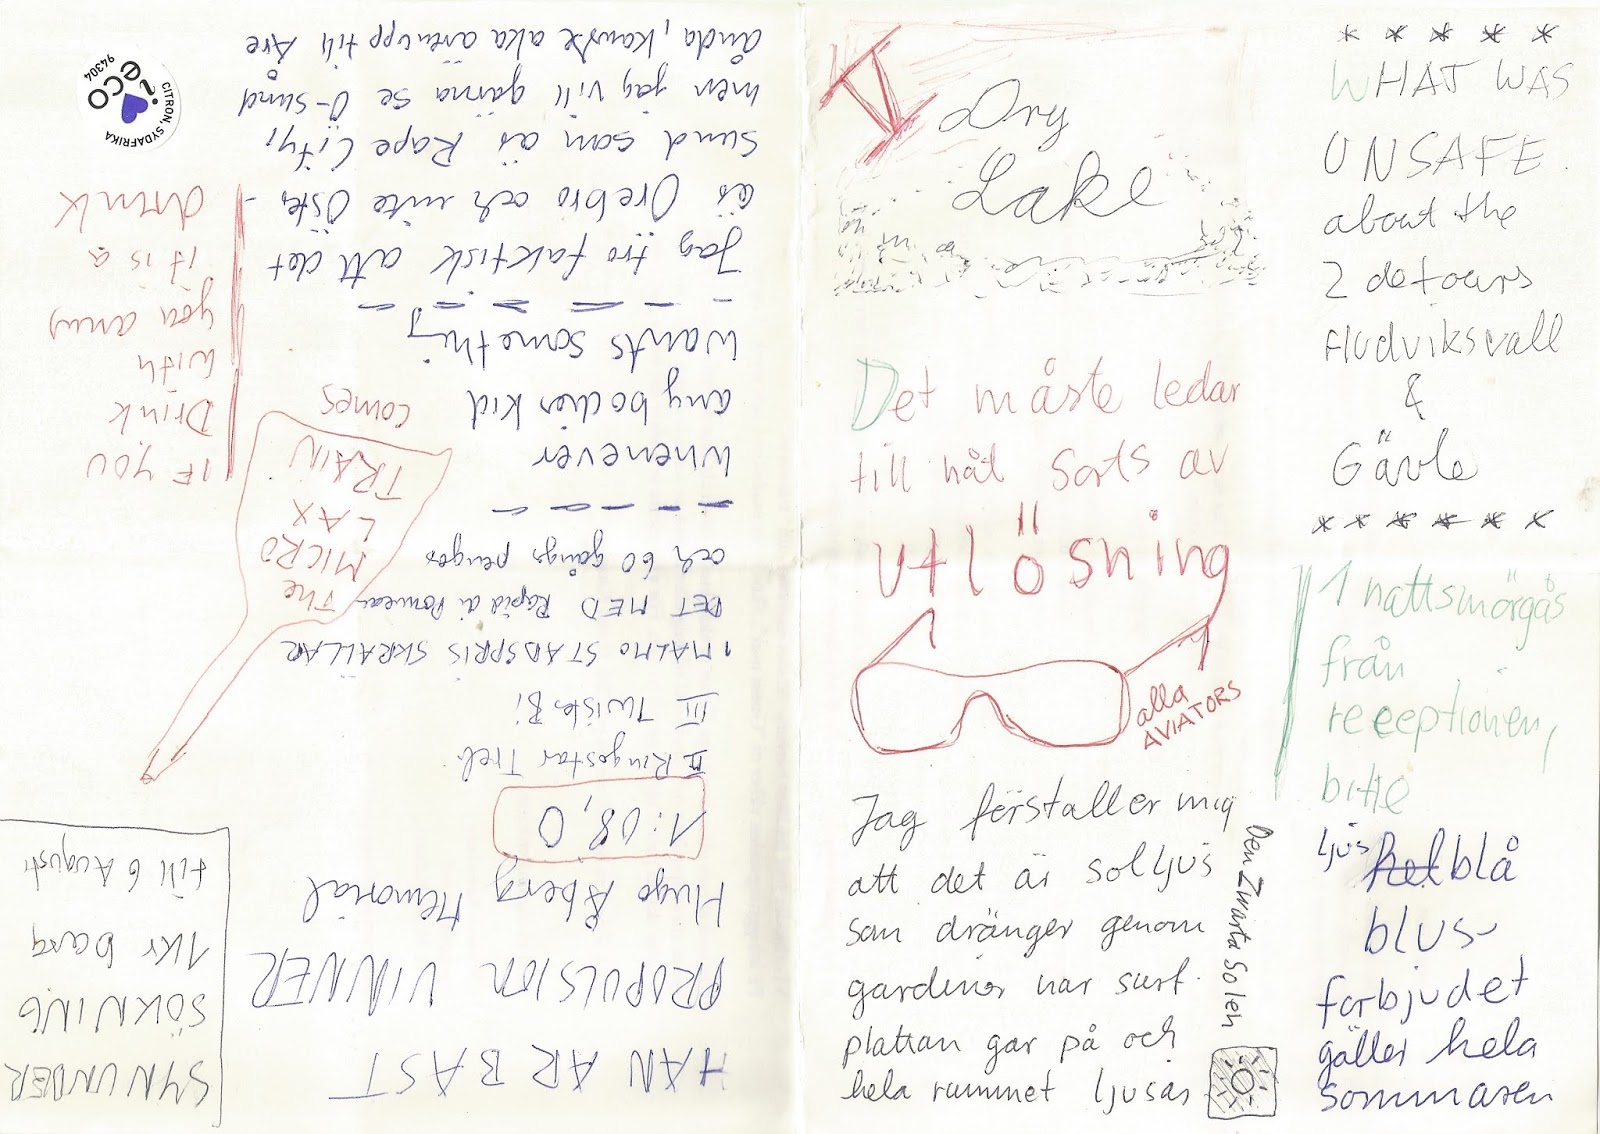 Dry
Lake
Det måste ledar
till nåt sorts av
utlösning
alla
AVIATORS
Jag förställer mig
att det är solljus
som dränger genom
gardiner nar surf-
plattan gar på och
hela rummet ljusas
Den Zwarta Solen
WHAT WAS
UNSAFE
about the
2 detours
Hudviksvall
&
Gävle
1 nattsmörgås
från
receptionen,
bitte
ljus hel blå
blus
forbjudet
gäller hela
sommaren
SYNUNDER
SÖKNING
1kr bara
till 6 Augusti
HAN AR BAST
PROPULSION VINNER
Hugo Åberg Memorial
1:08,0
II Ringostar Treb
III Twister Bi
1 MALMO STADSPRIS SKRÄLLAR
DET MED Rapid di Powear
och 60 gångs pengar
Whenever
any bodies kid
wants something
Jag tro faktisk att det
är Orebro och inte Öster-
sund som är Rape City,
men jag vill gärna se Ö-sund
ända, kanske aka även upp till Åre
The
MICRO
LAX
TRAIN
comes
IF YOU
Drink
with
you anus
it is a
drink
CITRON, SYDAFRIKA
i
eco
94304